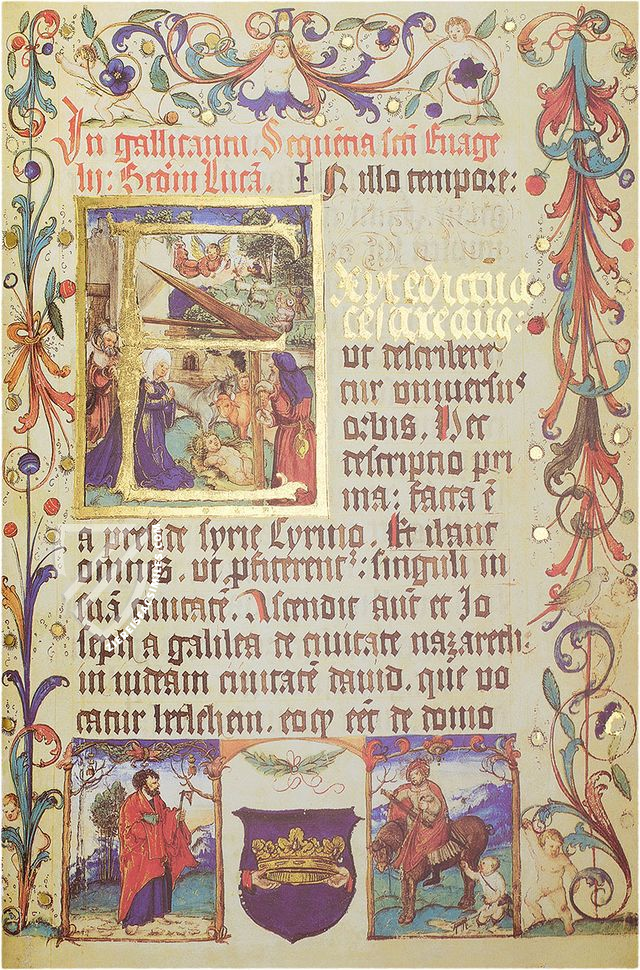 In gallicantu. Sequēcia sctī Euāge
lij: Scdm̄ Lucā. In illo tempore:
Exijt edictū a
cesare aug:
ut describere
tur universus
orbis. Hec
descriptio pri
ma: facta ē
a preside syrie Cyrino. Et ibant
omnes, ut pfiterentˀ: singuli in
suā civitatē. Ascendit aūt et Jo
seph a galilea de civitate nazareth:
in iudeam civitatē david. que vo
catur bethlehem. eo qˀ eēt de domo